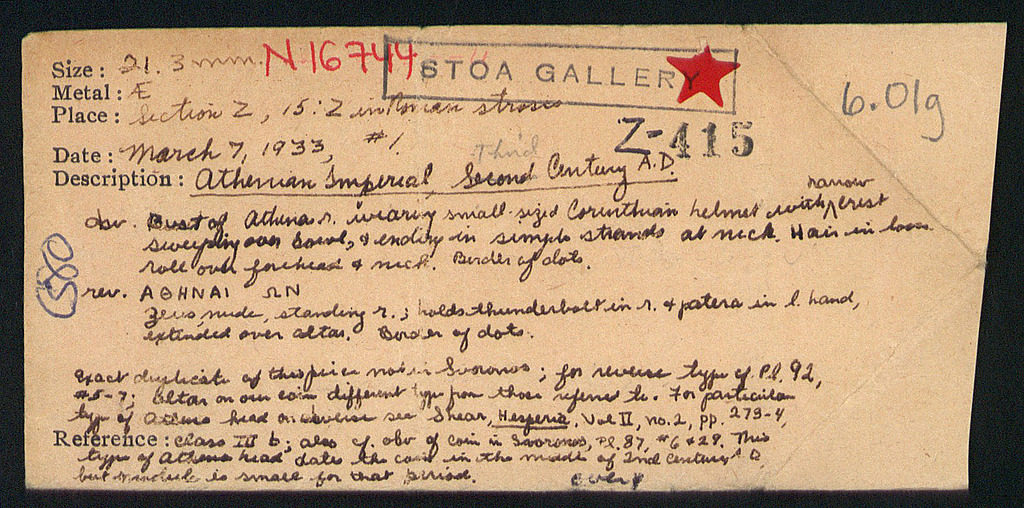 Size : 21.3 mm. N16744
STOA GALLERY
Metal : Æ
Place : Section Z, 15:Z in Roman
6.01g
Date : March 7, 1933, #1.
Z-415
Third
Description : Athenian Imperial, Second Century A.D.
narrow
obv. Bust of Athena r. wearing small-sized Corinthian helmet with crest
sweeping over bowl, & ending in simple strands at neck. Hair in loose
roll over forehead & neck. Border of dots.
580
rev. ΑΘΗΝΑΙ ΩΝ
Zeus, nude, standing r.; holds thunderbolt in r. & patera in l. hand,
extended over altar. Border of dots.
Exact duplicate of this piece not in Svoronos; for reverse type cf. Pl. 92,
#5-7; altar on our coin different type from those referred to. For particular
type of Athena head on obverse see Shear, Hesperia, Vol II, no. 2, pp. 273-4,
Reference : Class III b; also cf. obv of coin in Svoronos, Pl. 87, #6 & 29. This
type of Athena head date the coin in the middle of 2nd Century A.D.
but module is small for that period.